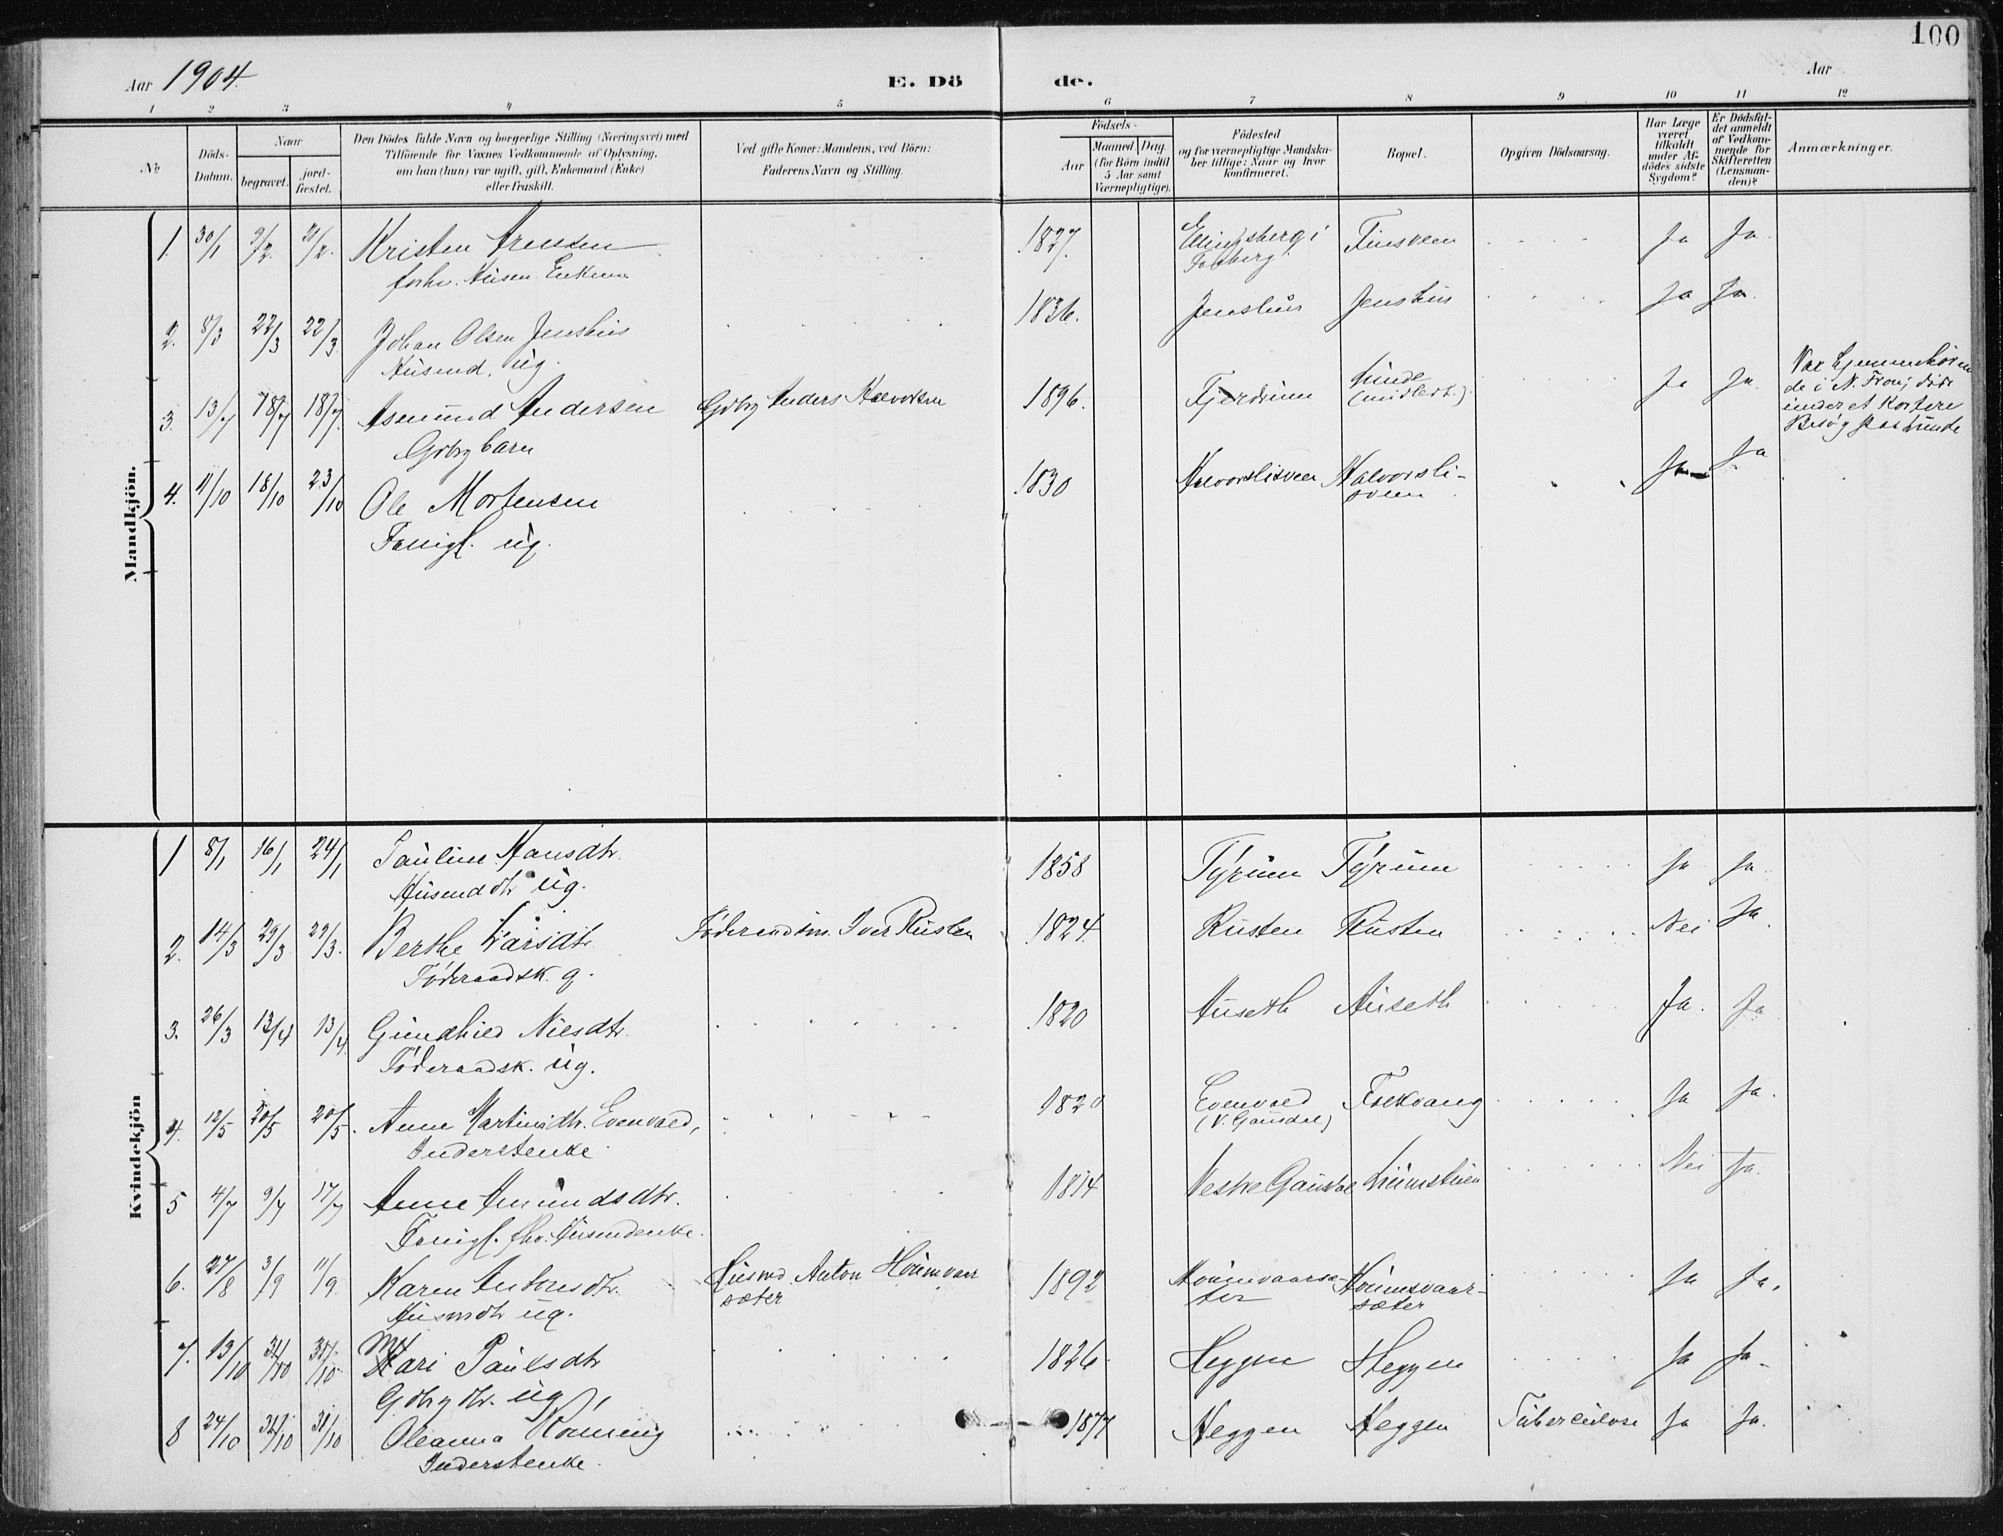 100
Aar 1904.
E. Dö de.
Aar
1 2 3 4 5 6 7 8 9 10 11 12
No
Döds-Datum.
Naar
begravet.
jord-fæstet.
Den Dödes fulde Navn og borgerlige Stilling (Næringsvei) med
Tilföiende for Voxnes Vedkommende af Oplysning,
om han (hun) var ugift, gift, Enkemand (Enke)
eller fraskilt.
Ved gifte Koner: Mandens, ved Börn:
Faderens Navn og Stilling.
Födsels-
Aar
Maaned Dag
(for Börn indtil
5 Aar samt
Værnepligtige).
Födested
og for værnepligtige Mandska-
ber tillige: Naar og hvor
konfirmeret.
Bopæl.
Opgiven Dödsaarsag.
Har Læge
været
tilkaldt
under Af-
dödes sidste
Sygdom?
Er Dödsfal-
det anmeldt
af Vedkom-
mende for
Skifteretten
(Lensman-
den)?
Anmærkninger.
Mandkjön.
1. 30/1 9/2 21/2 Kristen Arensen 1827. i Finsveen Ja Ja.
forhv. Husm. Enkem.
2. 8/3 22/3 22/3 Johan Olsen Jenshus 1836. Jenshus Jenshus Ja Ja.
Husmd. ug.
3. 13/7 18/7 18/7 Asmund Andersen Gdbr Anders Halvorsen 1896. Fjerdrum Lunde Ja Ja
(midlert.)
Gdbr barn
Var hjemmehören
de i N. Fron; døde
under et kortere
Besøg paa Lunde
4. 11/10 18/10 23/10 Ole Mortensen 1830 Halvorslisveen Halvorsli- Ja Ja
sveen
Fattigl. ug.
Kvindekjön
1 8/1 16/1 24/1 Pauline Hansdtr. 1858 Tyrum Tyrum Ja Ja.
Husmd dtr ug.
2. 14/3 29/3 29/3. Berthe Larsdtr. Föderaadsm. Iver Rusten 1824. Rusten Rusten Nei Ja.
Föderaadsk. g.
3. 26/3 13/4 13/4. Gundhild Nilsdtr. 1820 Auseth Auseth Ja. Ja
Föderaadsk. ug.
4. 12/5 20/5 20/5. Anne Martinsdtr. Evenvold, 1820 Evenvold Folkvang Ja Ja.
(V. Gausdal)
Inderstenke
5 4/7 9/7 17/7 Anne Amundsdtr. 1814 Vestre Gausdal Nei Ja
Fattigl. fhv. Husmdenke.
6. 27/8 3/9 11/9. Karen Antonsdtr. Husmd. Anton 1892 Ja Ja.
sæter
Husmdtr ug.
7. 13/10 31/10 31/10 Mari Paulsdtr 1826. Heggen Heggen Ja Ja
Gdbr dtr. ug
8 24/10 31/10 31/10 Oleanna 1877 Heggen Heggen Tuberculose Ja Ja.
Inderstenke.